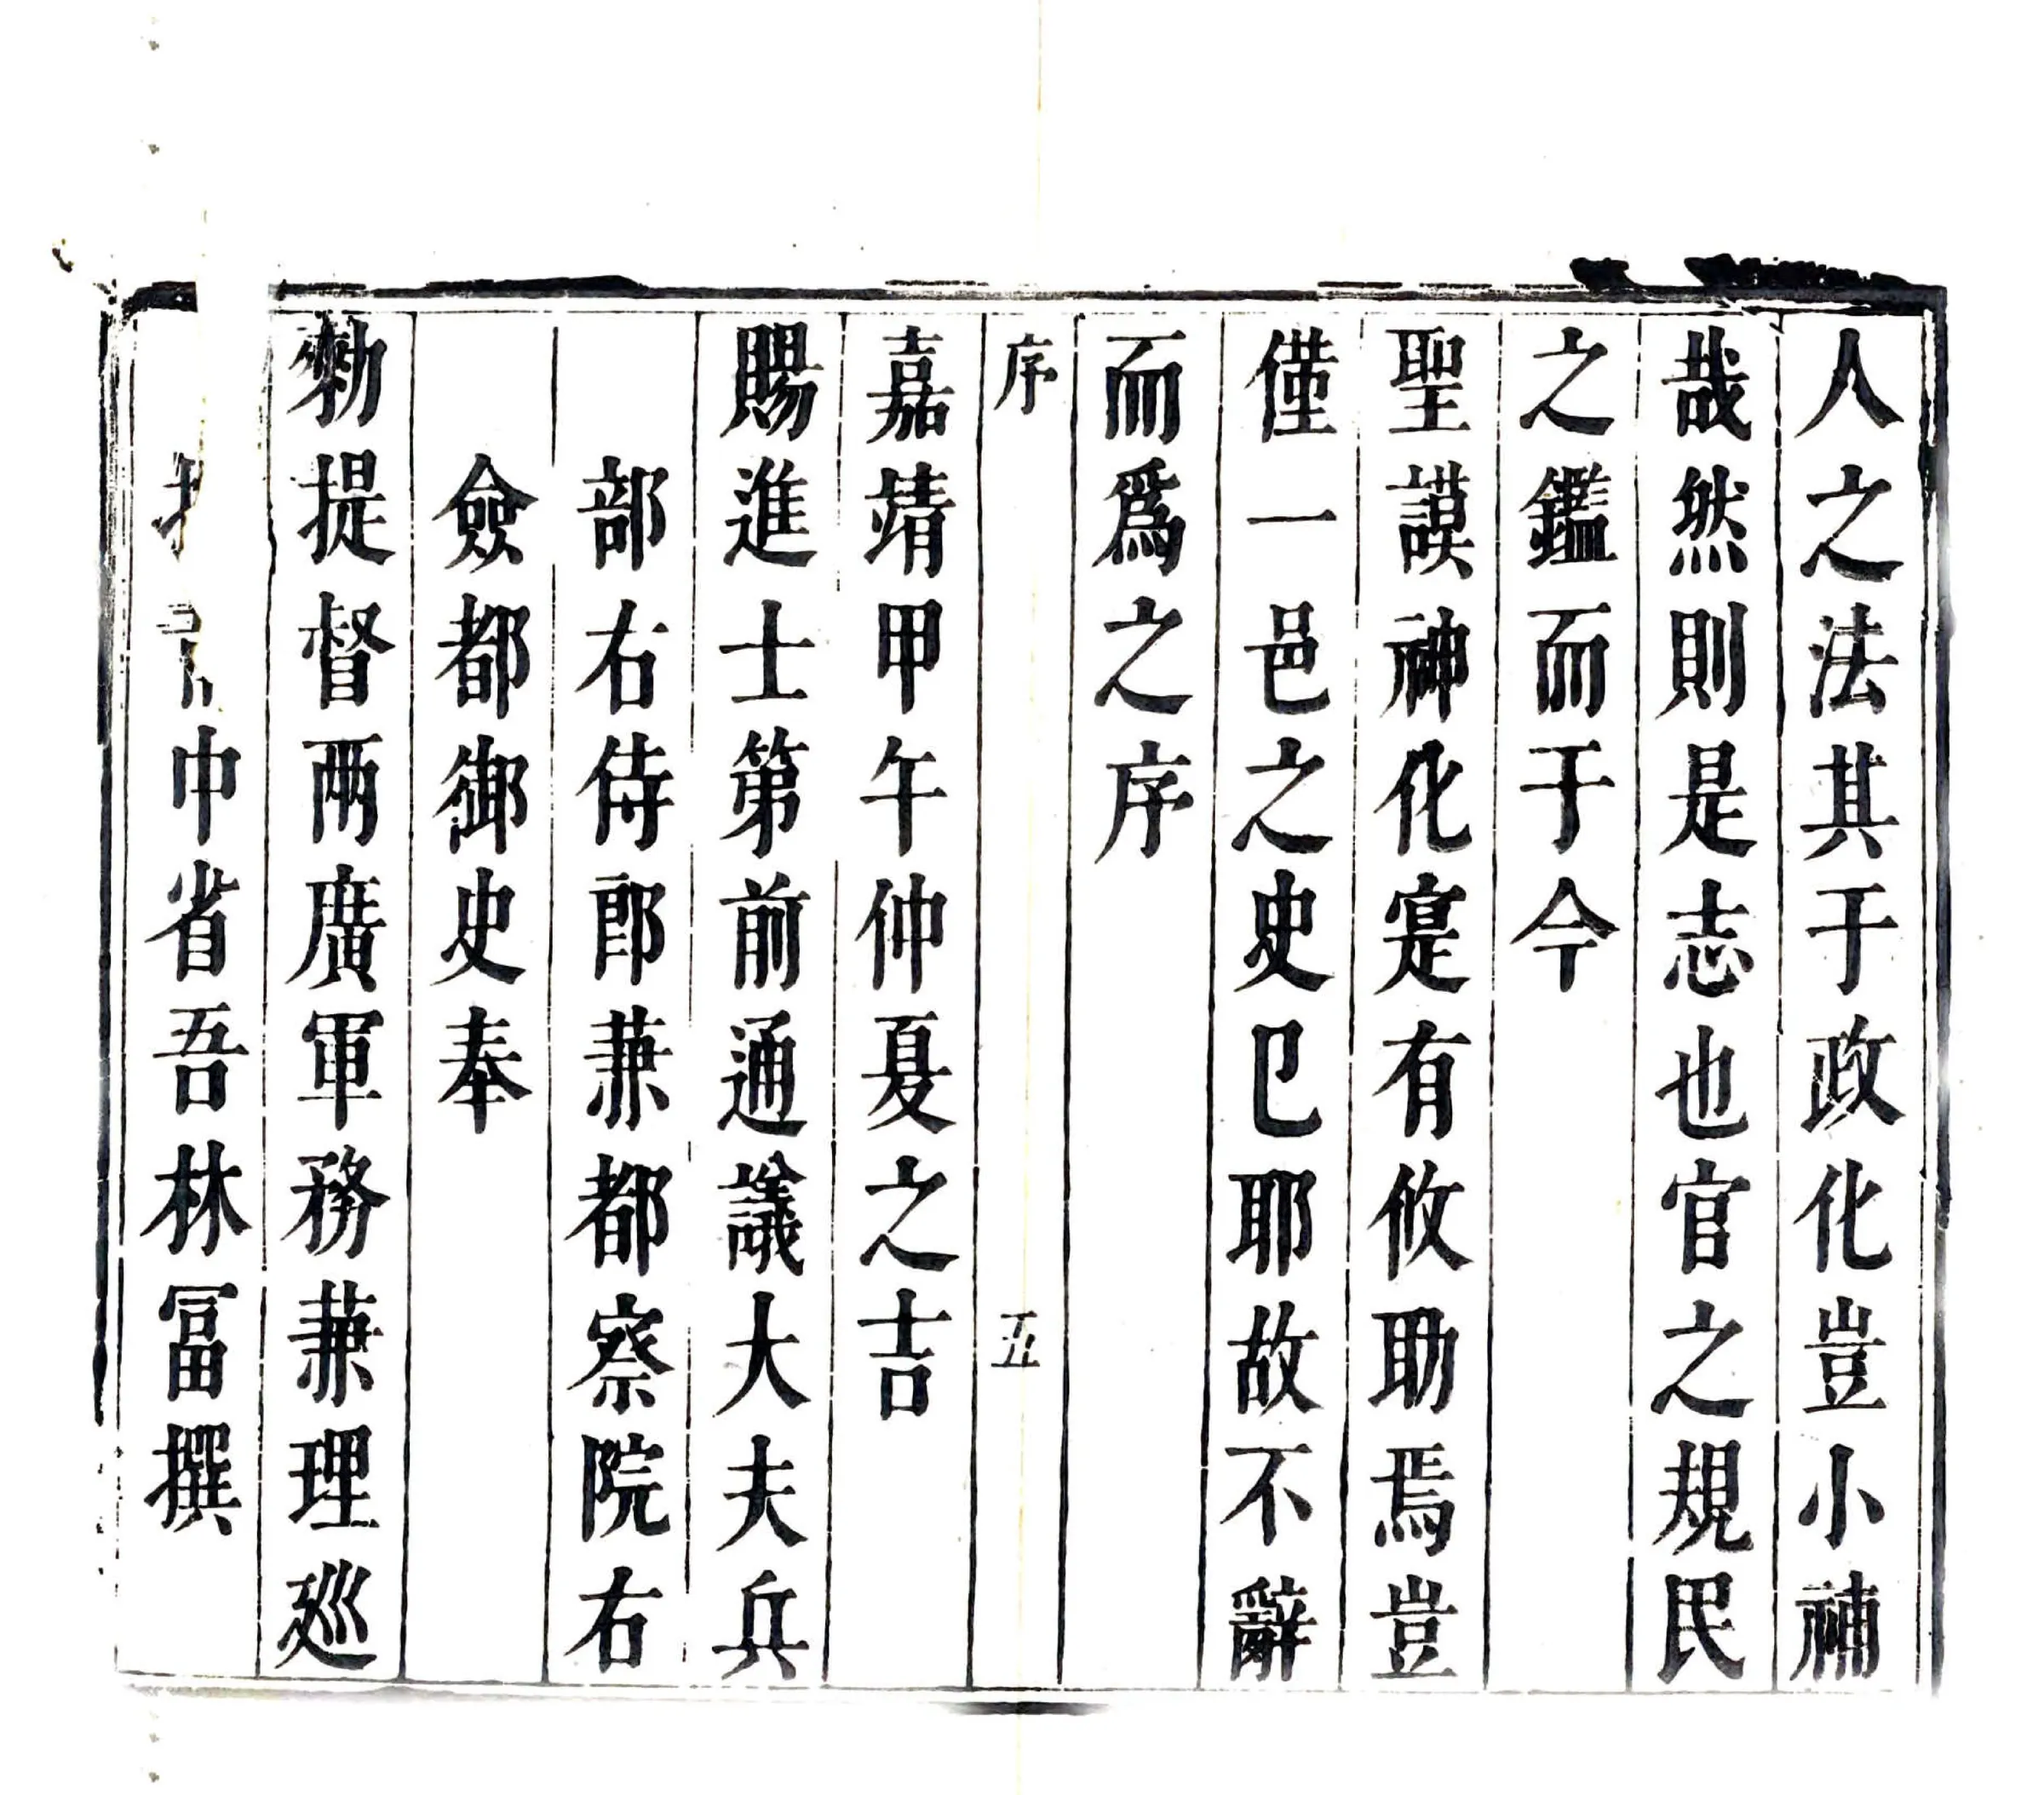 人之法其于政化豈小補
哉然則是志也官之規民
之鑑而于今
聖謨神化寔有攸助焉豈
僅一邑之史巳耶故不辭
而爲之序
序 五
嘉靖甲午仲夏之吉
賜進士第前通議大夫兵
部右侍郎兼都察院右
僉都御史奉
勑提督兩廣軍務兼理廵
巾省吾林冨撰